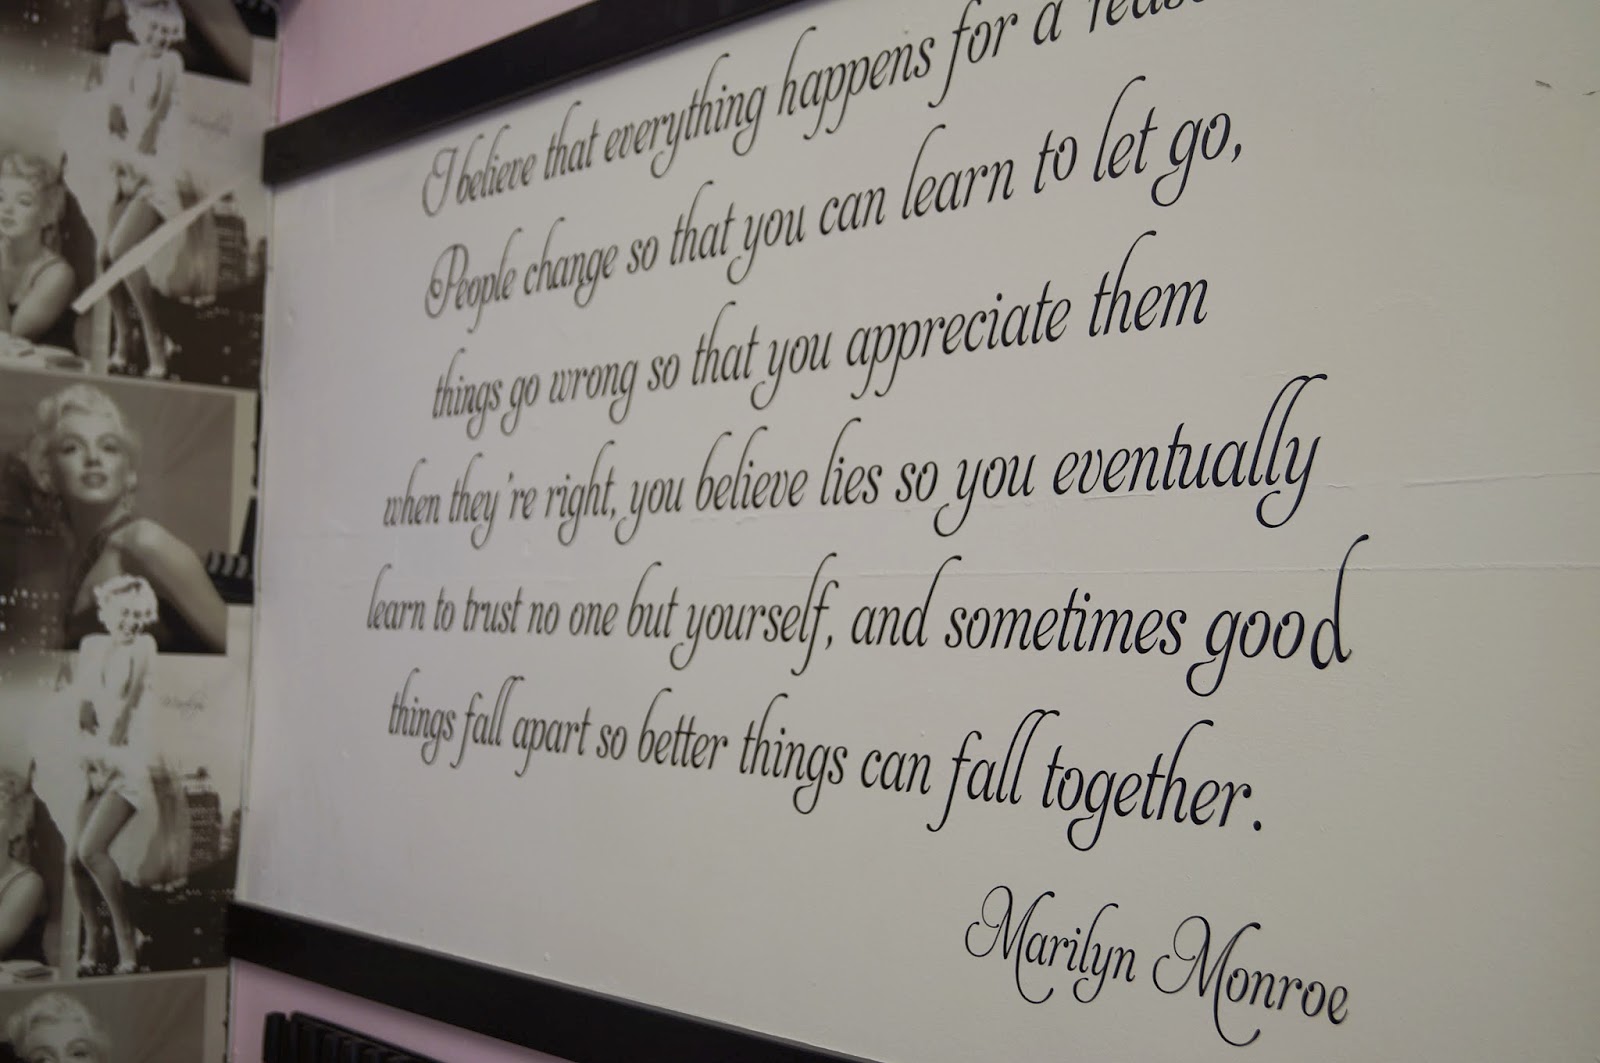 I believe that everything happens for a
People change so that you can learn to let go,
things go wrong so that you appreciate them
when they're right, you believe lies so you eventually
learn to trust no one but yourself, and sometimes good
things fall apart so better things can fall together.
Marilyn Monroe